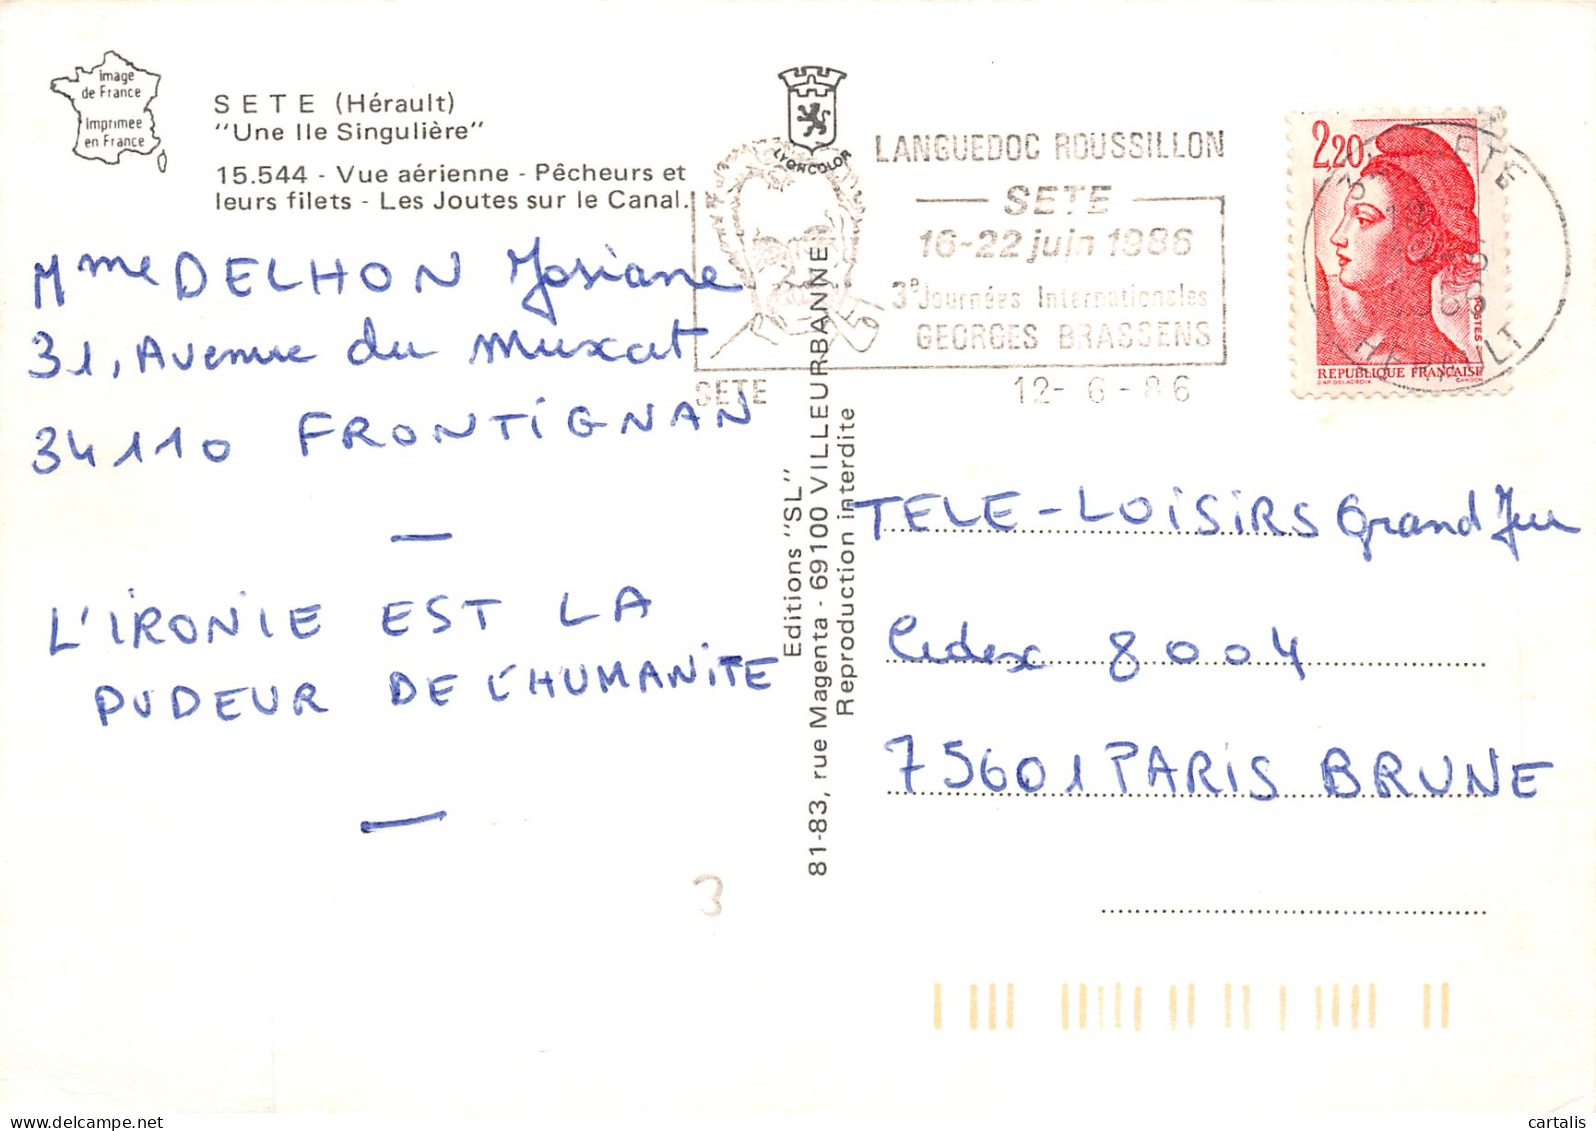 Image
de France
Imprimée
en France
SETE (Hérault)
"Une Ile Singulière"
15.544 - Vue aérienne - Pêcheurs et
leurs filets - Les Joutes sur le Canal.
Mme DELHON Josiane
31, Avenue du Muscat
34110 FRONTIGNAN
L'IRONIE EST LA
PUDEUR DE L'HUMANITE
3
LYONCOLOR
Editions "SL"
81-83, rue Magenta - 69100 VILLEURBANNE
Reproduction interdite
LANGUEDOC ROUSSILLON
SETE
16-22 juin 1986
3e Journées Internationales
GEORGES BRASSENS
SETE
12-6-86
2,20
POSTES
REPUBLIQUE FRANÇAISE
D'AP. DELACROIX GANDON
SETE
HERAULT
TELE-LOISIRS Grand Jeu
Cedex 8004
75601 PARIS BRUNE
cartalis | delcampe.net